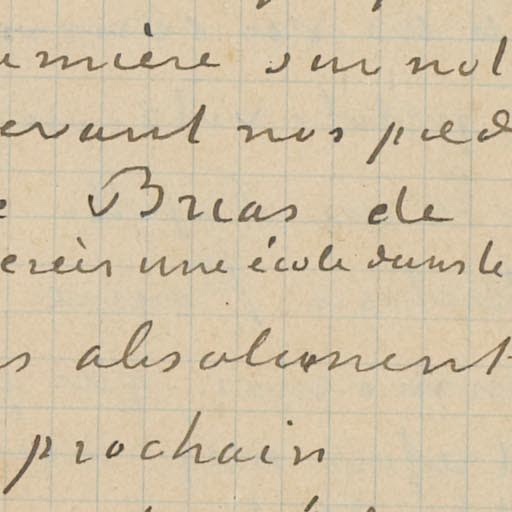 umière sur not
evant nos pied
e Brias de
ereèr une école dans le
s absolument
prochain